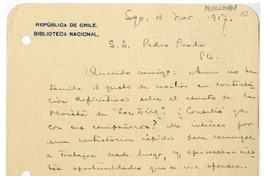 REPÚBLICA DE CHILE.
BIBLIOTECA NACIONAL.
Sgo, 14 Nov. 1917.
S. D. Pedro Prado
Pte.
Querido amigo: Aun no he
tenido el gusto de recibir su contesta-
ción definitiva sobre el asunto de la
Revista de "Los Diez". ¿Consultó ya
con sus compañeros? Me interesa
una contestación rápida para comenzar
a trabajar desde luego, y aprovechar
oportunidades que se me